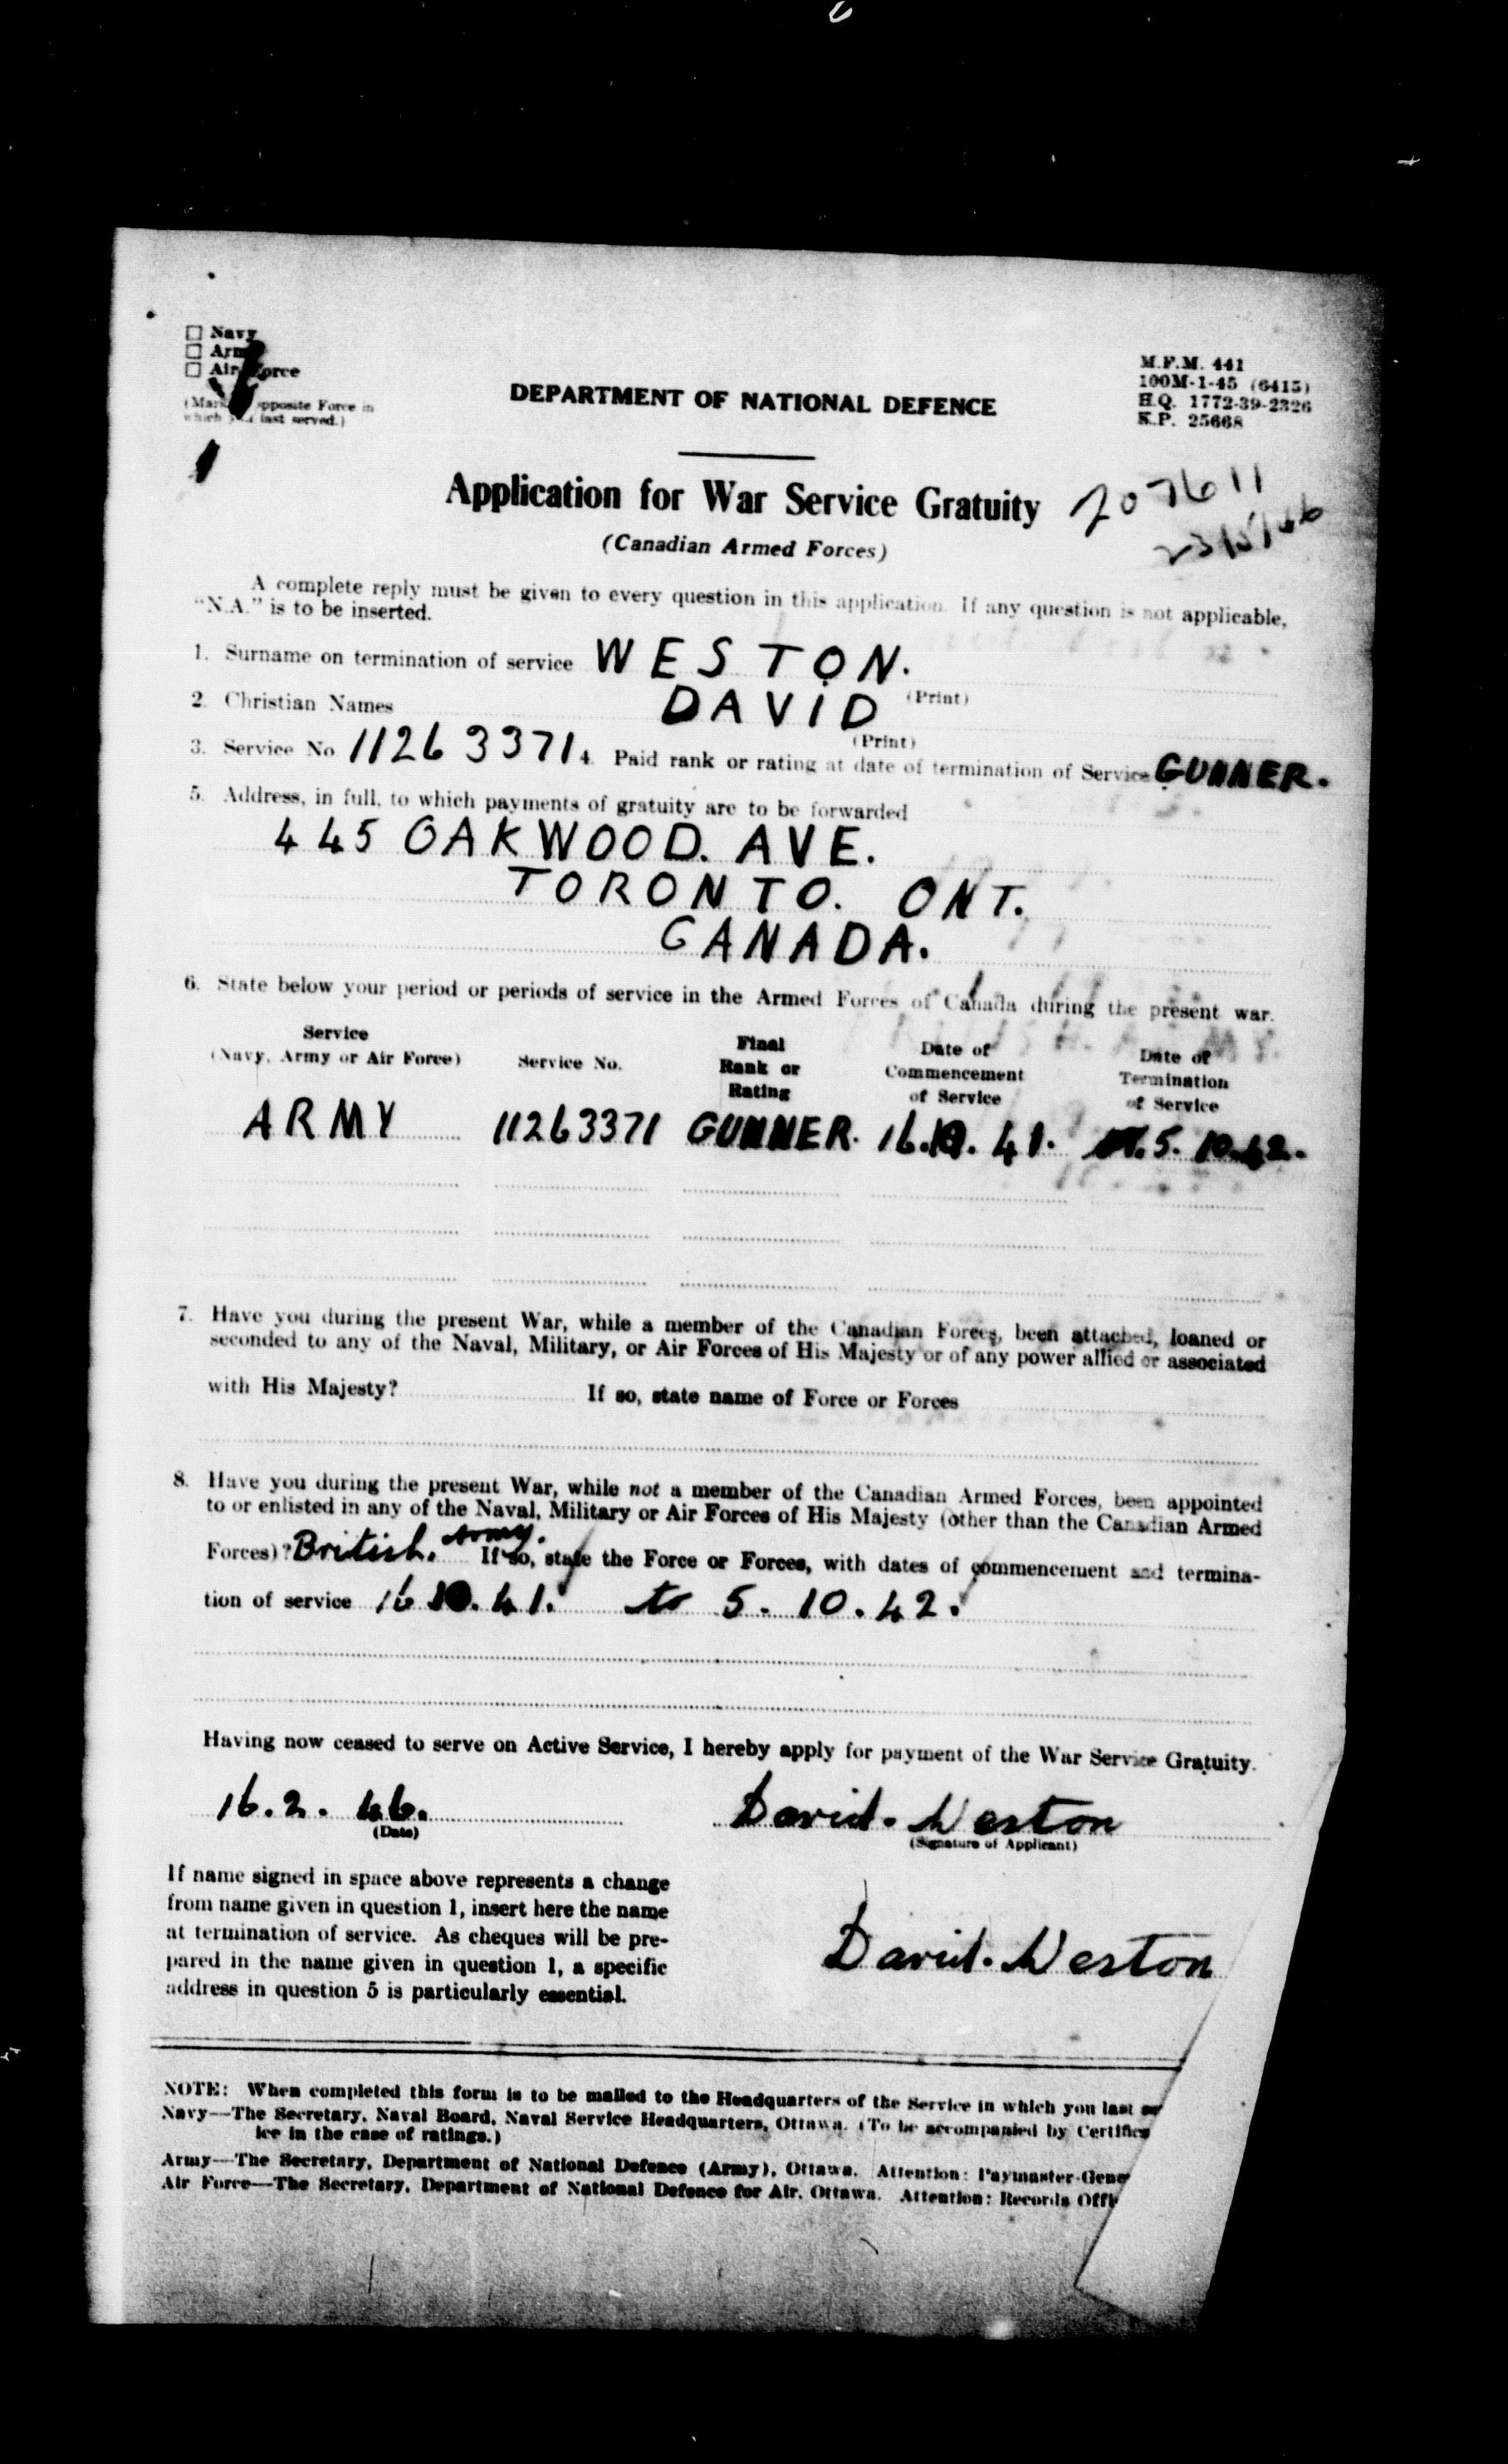 ☐ Navy
☐ Army
☐ Air Force
(Mark opposite Force in
which you last served.)
M.F.M. 441
100M-1-45 (6415)
H.Q. 1772-39-2326
K.P. 25668
DEPARTMENT OF NATIONAL DEFENCE
Application for War Service Gratuity
(Canadian Armed Forces)
A complete reply must be given to every question in this application. If any question is not applicable,
"N.A." is to be inserted.
1. Surname on termination of service WESTON.
(Print)
2. Christian Names DAVID
(Print)
3. Service No 11263371 4. Paid rank or rating at date of termination of Service GUNNER.
5. Address, in full, to which payments of gratuity are to be forwarded
445 OAKWOOD. AVE.
TORONTO. ONT.
CANADA.
6. State below your period or periods of service in the Armed Forces of Canada during the present war.
Service (Navy, Army or Air Force) Service No. Final Rank or Rating Date of Commencement of Service Date of Termination of Service
ARMY 11263371 GUNNER. 16.10.41. 5.10.42.
7. Have you during the present War, while a member of the Canadian Forces, been attached, loaned or
seconded to any of the Naval, Military, or Air Forces of His Majesty or of any power allied or associated
with His Majesty? If so, state name of Force or Forces
8. Have you during the present War, while not a member of the Canadian Armed Forces, been appointed
to or enlisted in any of the Naval, Military or Air Forces of His Majesty (other than the Canadian Armed
Forces)? British. Army. If so, state the Force or Forces, with dates of commencement and termina-
tion of service 16.10.41. to 5.10.42.
Having now ceased to serve on Active Service, I hereby apply for payment of the War Service Gratuity.
16.2.46. David. Weston
(Date) (Signature of Applicant)
If name signed in space above represents a change
from name given in question 1, insert here the name
at termination of service. As cheques will be pre-
pared in the name given in question 1, a specific
address in question 5 is particularly essential.
David. Weston
NOTE: When completed this form is to be mailed to the Headquarters of the Service in which you last
Navy—The Secretary, Naval Board, Naval Service Headquarters, Ottawa. (To be accompanied by Certific
ice in the case of ratings.)
Army—The Secretary, Department of National Defence (Army), Ottawa. Attention: Paymaster-Gene
Air Force—The Secretary, Department of National Defence for Air, Ottawa. Attention: Records Offi